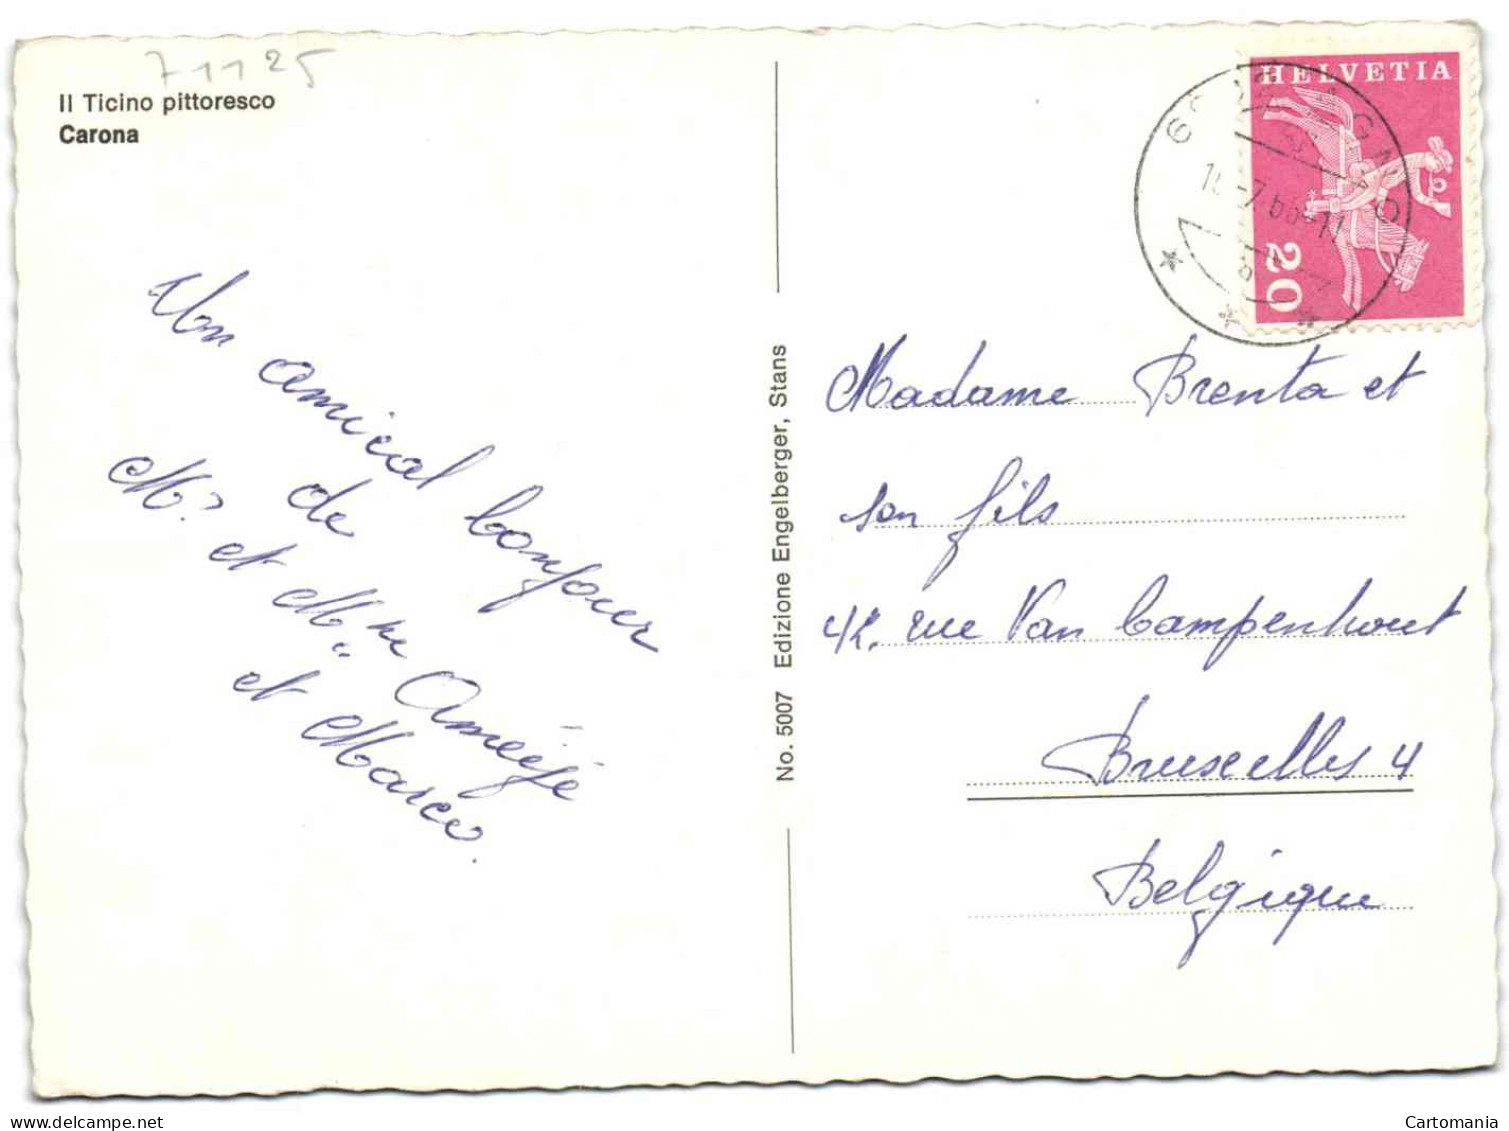 71125
Il Ticino pittoresco
Carona
Un amical bonjour
de
Mr et Mme
et Marco.
No. 5007 Edizione Engelberger, Stans
HELVETIA
20
AGNO
Madame Brenta et
son fils
42, rue Van Campenhout
Bruxelles 4
Belgique
Cartomania